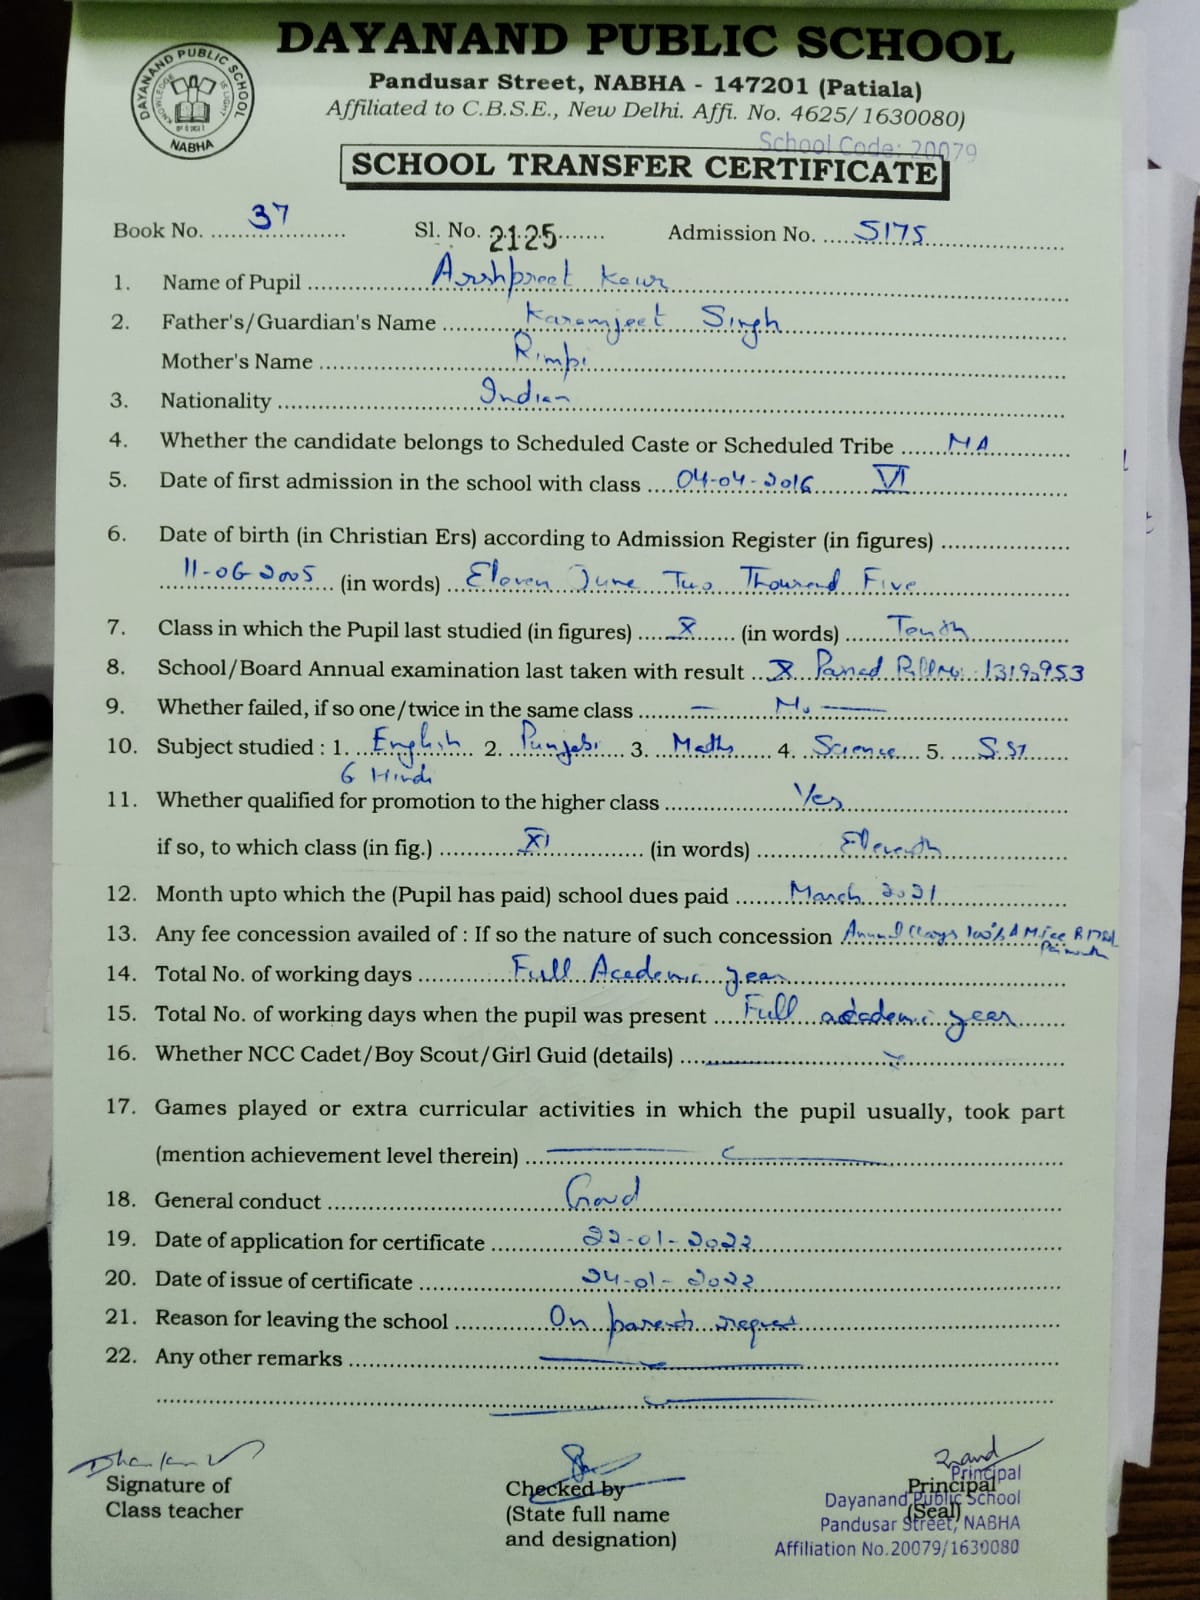 DAYANAND PUBLIC SCHOOL
Pandusar Street, NABHA - 147201 (Patiala)
Affiliated to C.B.S.E., New Delhi. Affi. No. 4625/ 1630080)
School Code: 20079
DAYANAND PUBLIC SCHOOL
KNOWLEDGE IS LIGHT
NABHA
SCHOOL TRANSFER CERTIFICATE
Book No. 37 Sl. No. 2125 Admission No. 5175
1. Name of Pupil Arshpreet Kaur
2. Father's/Guardian's Name Karamjeet Singh
Mother's Name Rimpi
3. Nationality Indian
4. Whether the candidate belongs to Scheduled Caste or Scheduled Tribe NA
5. Date of first admission in the school with class 04-04-2016 VI
6. Date of birth (in Christian Ers) according to Admission Register (in figures)
11-06-2005 (in words) Eleven June Two Thousand Five
7. Class in which the Pupil last studied (in figures) X (in words) Tenth
8. School/Board Annual examination last taken with result X Passed Roll No. 13192953
9. Whether failed, if so one/twice in the same class — No —
10. Subject studied : 1. English 2. Punjabi 3. Maths 4. Science 5. S.St
6 Hindi
11. Whether qualified for promotion to the higher class Yes
if so, to which class (in fig.) XI (in words) Eleventh
12. Month upto which the (Pupil has paid) school dues paid March 2021
13. Any fee concession availed of : If so the nature of such concession Annual 100%
14. Total No. of working days Full Academic year
15. Total No. of working days when the pupil was present Full academic year
16. Whether NCC Cadet/Boy Scout/Girl Guid (details)
17. Games played or extra curricular activities in which the pupil usually, took part
(mention achievement level therein)
18. General conduct Good
19. Date of application for certificate 22-01-2022
20. Date of issue of certificate 24-01-2022
21. Reason for leaving the school On parents request
22. Any other remarks
Signature of
Class teacher
Checked by
(State full name
and designation)
Principal
(Seal)
Principal
Dayanand Public School
Pandusar Street, NABHA
Affiliation No.20079/1630080